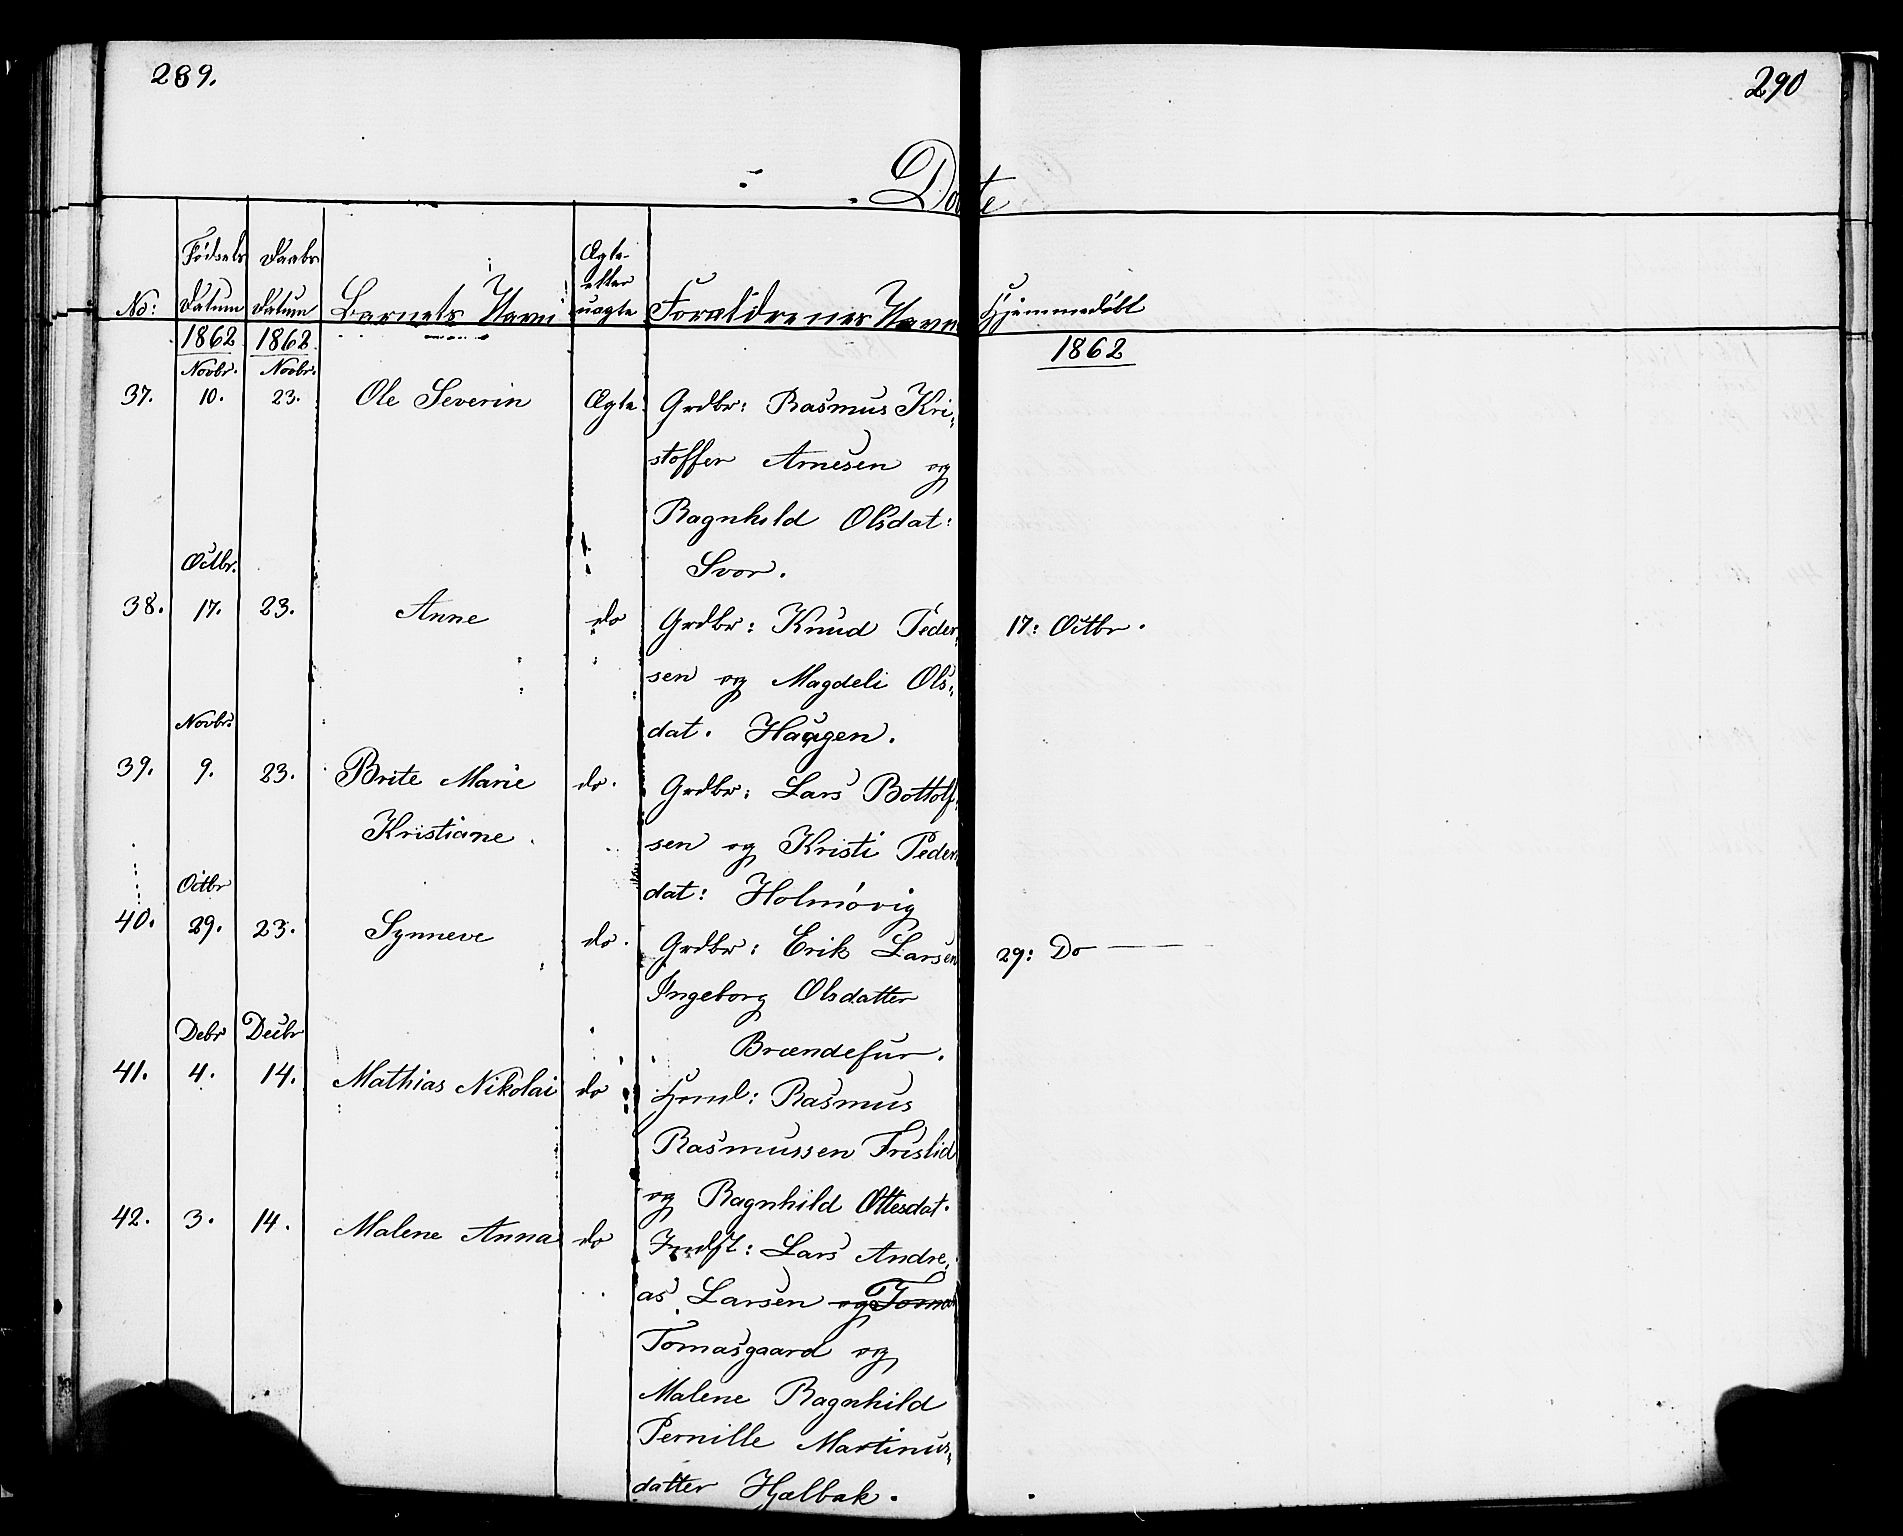 289.
290
Døbte
No:
Fødsels
Datum
Daabs
Datum
Barnets Navn
Ægte
eller
uægte
Forældrenes Navne
Hjemmedøbt
1862 1862 1862
Novbr. Novbr.
37. 10. 23. Ole Severin Ægte Grdbr: Rasmus Kri-
stoffer Arnesen og
Ragnhild Olsdat:
Svor.
Octbr.
38. 17. 23. Anne do Grdbr: Knud Peder- 17: Octbr.
sen og Magdeli Ols-
dat. Haugen.
Novbr:
39. 9. 23. Brite Marie do. Grdbr: Lars Bottolf-
Kristiane. sen og Kristi Peders
dat: Holmøvig
Octbr
40. 29. 23. Synneve do. Grdbr: Erik Larsen 29: Do
Ingeborg Olsdatter
Brændefur.
Debr Decbr
41. 4. 14. Mathias Nikolai do Hmd: Rasmus
Rasmussen Frislid
og Ragnhild Ottesdat.
42. 3. 14. Malene Anna do Indst: Lars Andre-
as Larsen og Tomas
Tomasgaard og
Malene Ragnhild
Pernille Martinus-
datter Hjælbak.